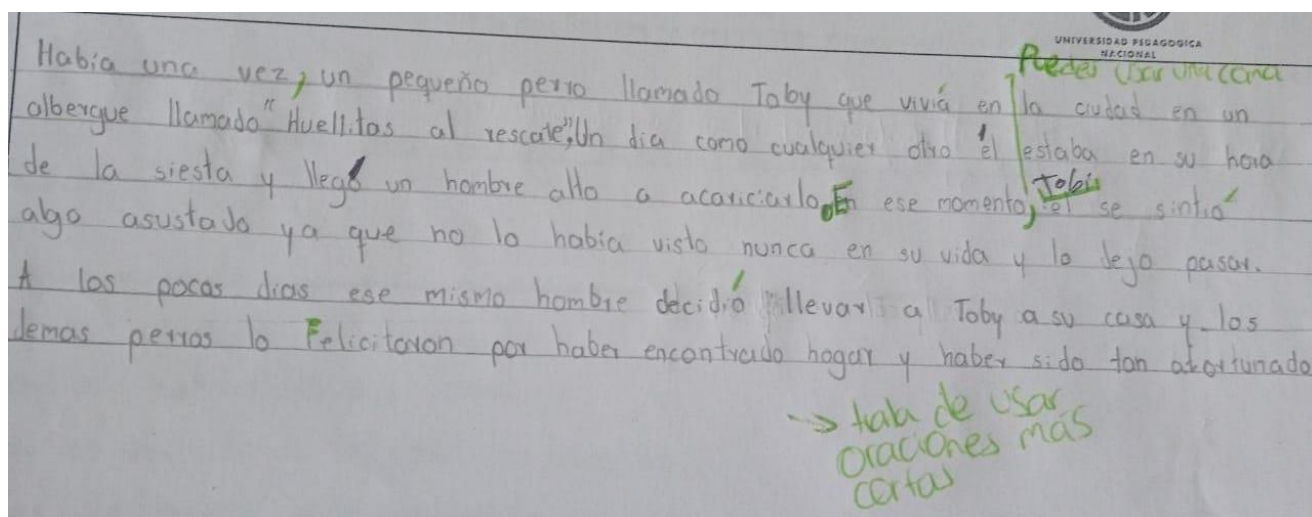 UNIVERSIDAD PEDAGOGICA
NACIONAL
Puedes usar una coma
Había una vez, un pequeño perro llamado Toby que vivía en la ciudad en un
albergue llamado "Huellitas al rescate", Un dia como cualquier otro él estaba en su hora
de la siesta y llegó un hombre alto a acariciarlo. En ese momento, el se sintió
Tobi
algo asustado ya que no lo había visto nunca en su vida y lo dejo pasar.
A los pocos dias ese mismo hombre decidió llevar a Toby a su casa y los
demas perros lo Felicitaron por haber encontrado hogar y haber sido tan afortunado
→ trata de usar
oraciones más
cortas